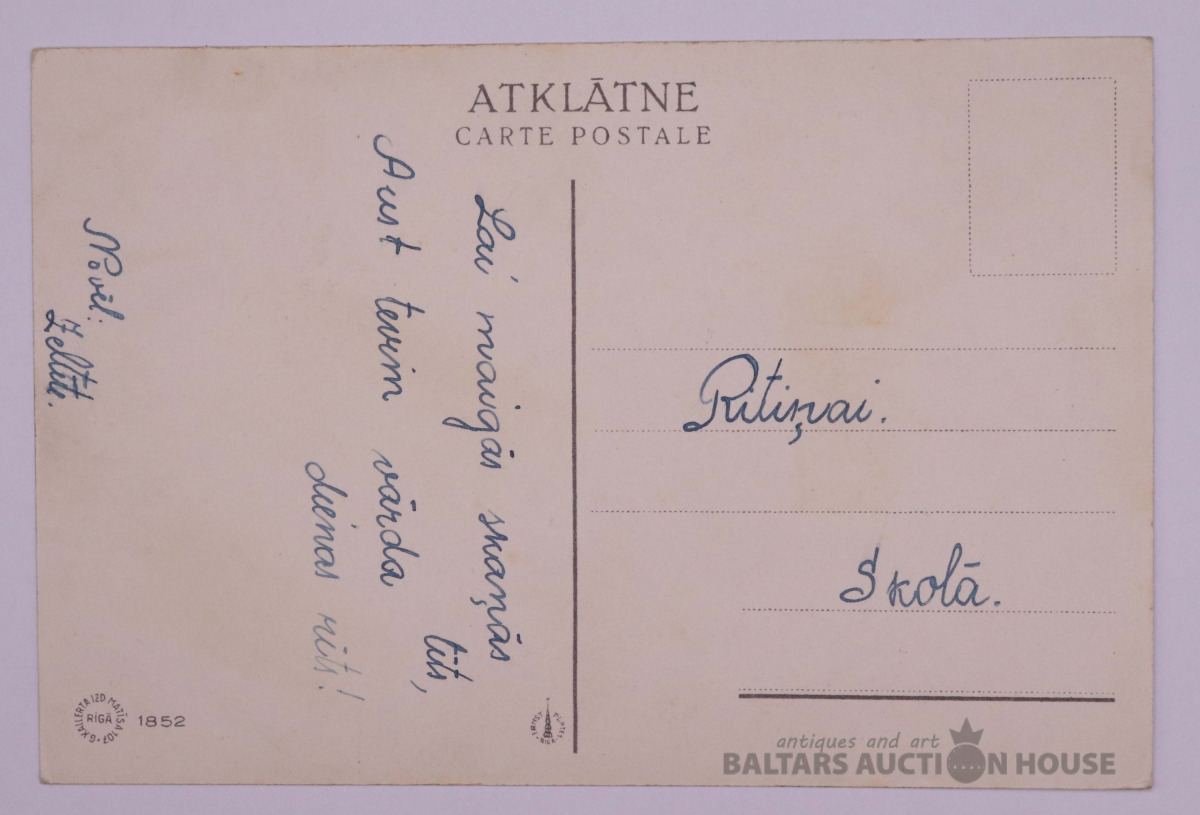 ATKLĀTNE
CARTE POSTALE
Lai maigās skaņās
tīts,
Aust tevim vārda
dienas rīts!
Novēl:
Zellīte.
Ritiņai.
Skolā.
G. KALLERTA IZD. MATĪSA 107
RĪGĀ
1852
antiques and art
BALTARS AUCTION HOUSE